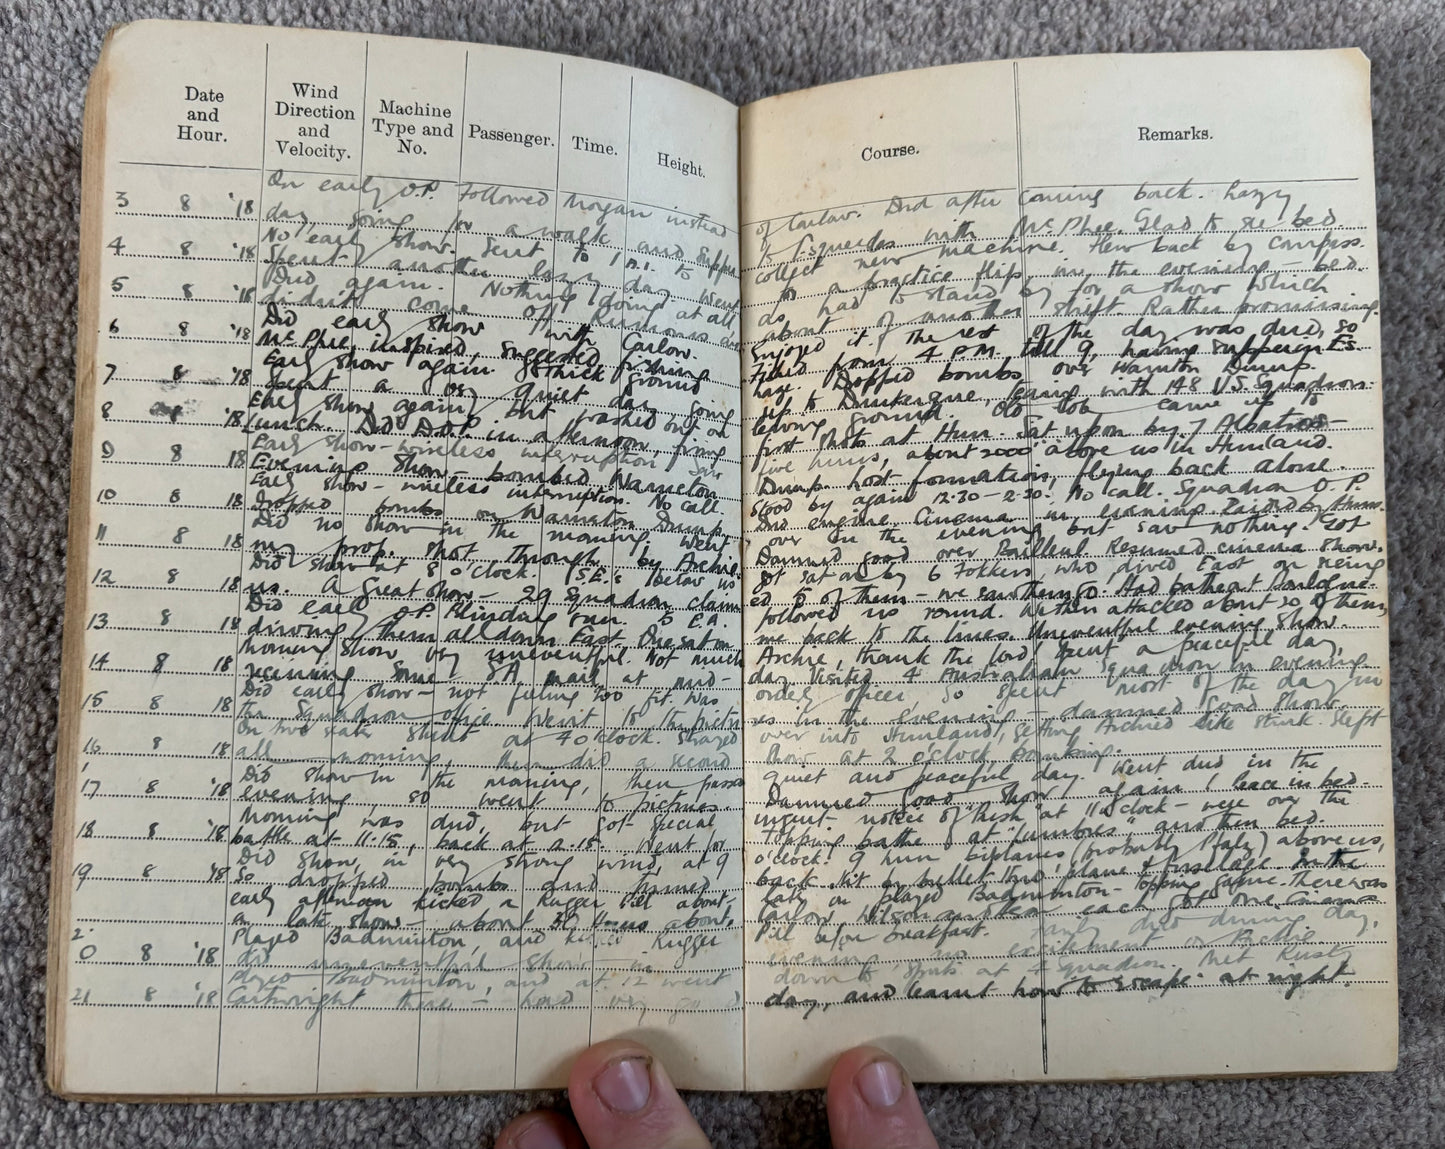 Date and Hour. Wind Direction and Velocity. Machine Type and No. Passenger. Time. Height. Course. Remarks.
3 8 '18 On early O.P. Followed Morgan instead of Carlaw. Did after coming back. hazy
day, going for a walk and supper to Esquerdes with McPhee. Glad to see bed.
4 8 '18 No early show. Sent to 1 A.I. to collect new machine. Flew back by compass.
Spent another lazy day. Went for a practice flip, in the evening – bed.
5 8 '18 Dud again. Nothing doing at all, as had to stand by for a show which
didn't come off. Rumours are about of another shift. Rather promising.
6 8 '18 Did early show with Carlow. Enjoyed it. The rest of the day was dud, so
McPhee, inspired, suggested fishing. Fished from 4 PM, till 9, having supper in Es.
7 8 '18 Early show again. Thick ground haze. Dropped bombs over Warneton Dump.
Spent a very quiet day, going up to Dunkerque, with 148 U.S. Squadron.
8 8 '18 Early show again, but washed out on leaving ground. Old came up to
Lunch. Did D.O.P. in afternoon, firing first shots at Hun. Sat upon by 7 Albatros –
9 8 18 Early show – wireless interruption. Saw five huns, about 2000 above us in Hunland.
Evening show – bombed Warneton Dump. lost formation, flying back alone.
10 8 18 Early show – wireless interruption. No call. Stood by again 12.30 – 2.30. No call. Squadron O.P.
Dropped bombs on Warneton Dump. Did engine. Cinema in evening. Raided by Huns.
11 8 18 Did no show in the morning. Went over in the evening but saw nothing. Got
my prop. shot through by Archie. Damned good over Bailleul. Resumed cinema show.
12 8 18 Did show at 8 o'clock. S.E.s below us got sat on by 6 Fokkers, who dived East on seeing
us. A Great Show – 29 Squadron claimed 5 of them – we 
13 8 18 Did early O.P. Blinding sun. 5 E.A. followed us round. Wilson attacked about 20 of them,
driving them all down East. One sat on me back to the lines. Uneventful evening show.
14 8 18 Morning show very uneventful. Not much Archie, thank the lord! Spent a peaceful day,
receiving some S.A. mail at mid-day. Visited 4 Australian Squadron in evening
15 8 18 Did early show – not feeling too fit. Was orderly officer, so spent most of the day in
the Squadron office. Went to the pictures in the evening – damned good show.
16 8 18 On two seater stunt at 4 o'clock. Strayed over into Hunland, getting Archied like stink. Slept
all morning, then did a second show at 2 o'clock, bombing.
17 8 '18 Did show in the morning, then passed quiet and peaceful day. Went dud in the
evening, so went to pictures. Damned good show again! Peace in bed.
18 8 '18 Morning was dud, but got special urgent notice of "Push" at 11 o'clock – were over the
battle at 11.15, back at 2.15. Went for topping bathe at "Lumbres" and then bed.
19 8 '18 Did show, in very strong wind, at 9 o'clock. 9 Hun biplanes (probably Pfalz) above us,
so dropped bombs and turned back. Hit by bullet thro' plane & fuselage. In the
early afternoon kicked a Rugger Pill about – later on played Badminton – topping game. There was
a late show – about 30 Huns about. Carlow, Wilson each got one.
20 8 '18 Played Badminton, and kicked Rugger Pill before breakfast. Fairly dud during day,
did uneventful show in evening, no excitement or Archie.
21 8 '18 Played Badminton, and at 12 went down to Sports at 4 Squadron. Met Rusty
Cartwright there – had very good day, and learnt how to escape at night.